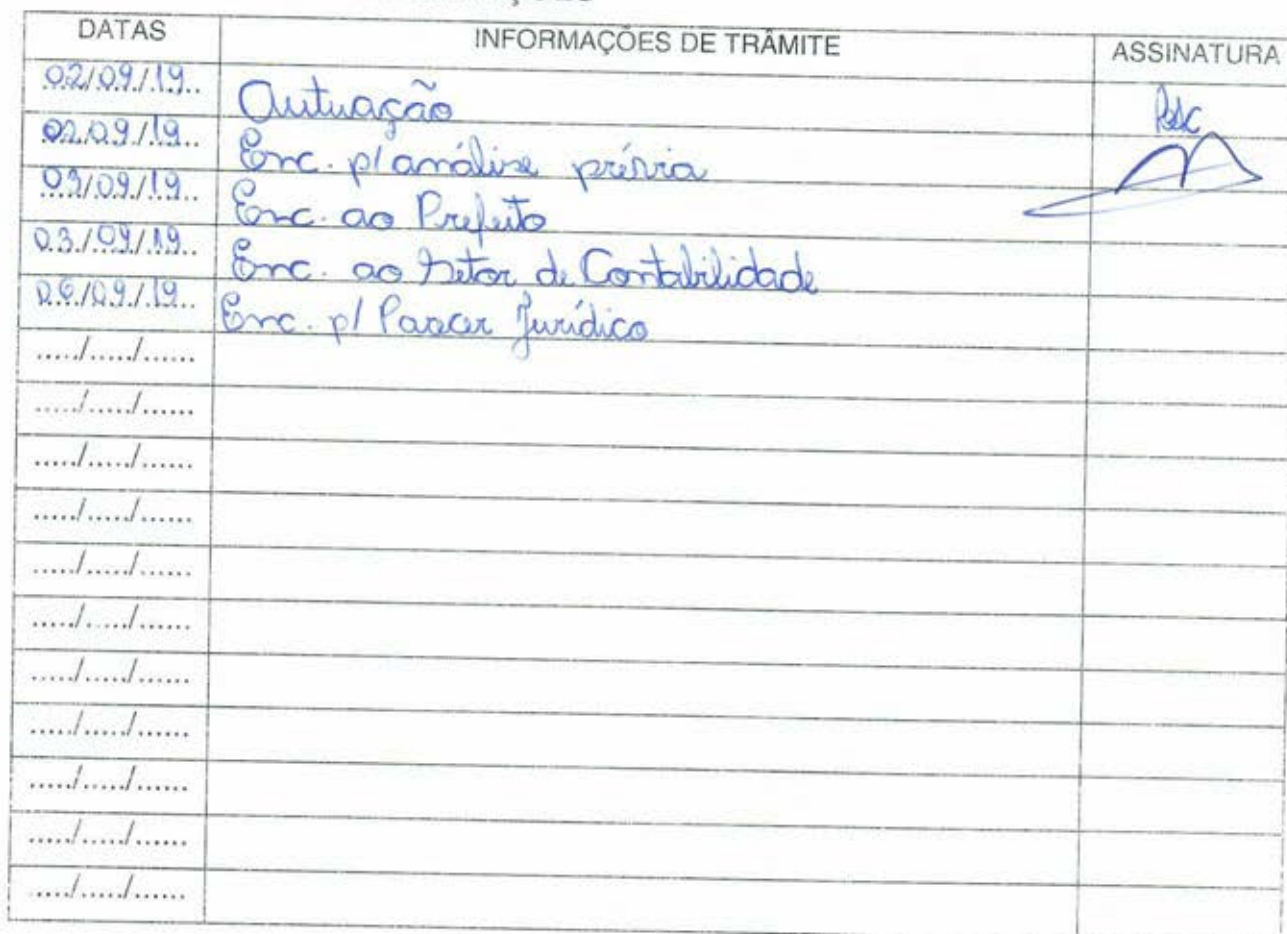 DATAS INFORMAÇÕES DE TRÂMITE ASSINATURA
02/09/19 Autuação
02/09/19 Enc. p/ análise prévia
03/09/19 Enc. ao Prefeito
03/09/19 Enc. ao Setor de Contabilidade
06/09/19 Enc. p/ Parecer Jurídico